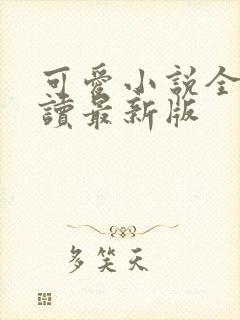 可愛小說全
讀最新版
多笑天